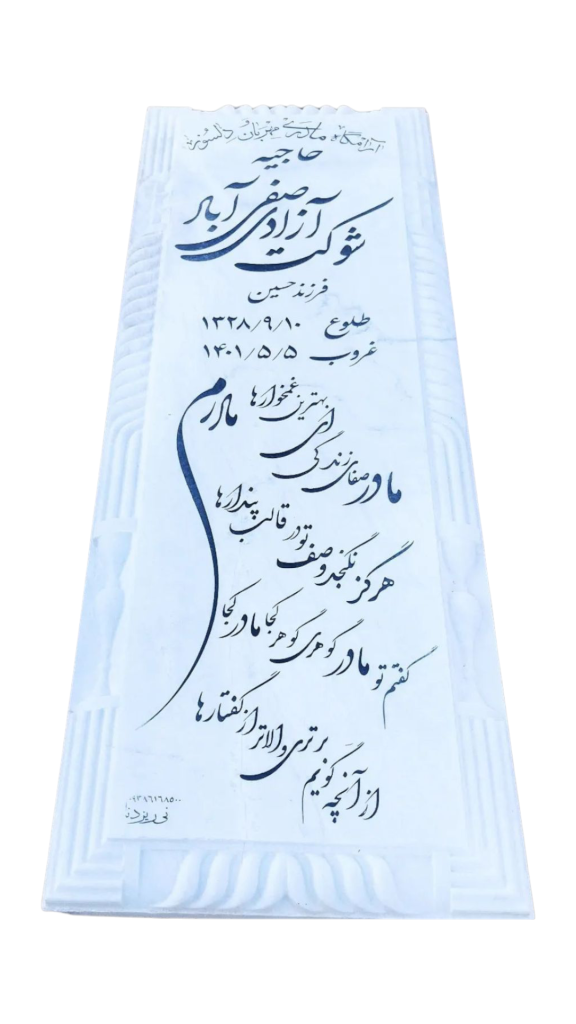 آرامگاه مادری مهربان و دلسوز
حاجیه
شوکت آزادی صفی آباد
فرزند حسین
طلوع ۱۳۲۸/۹/۱۰
غروب ۱۴۰۱/۵/۵
مادرم
ای بهترین غمخوارها
مادر صفای زندگی
هرگز نگنجد وصف تو در قالب پندارها
گفتم تو مادر گوهری گوهر کجا مادر کجا
از آنچه گویم برتری والاتر از گفتارها